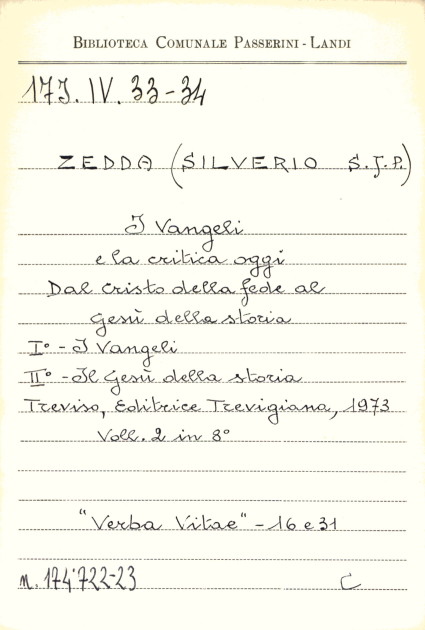 BIBLIOTECA COMUNALE PASSERINI - LANDI
17J. IV. 33-34
ZEDDA (SILVERIO S.J.P.)
I Vangeli
e la critica oggi
Dal Cristo della fede al
Gesù della storia
I° - I Vangeli
II° - Il Gesù della storia
Treviso, Editrice Trevigiana, 1973
Voll. 2 in 8°
"Verba Vitae" - 16 e 31
n. 174'722-23
C